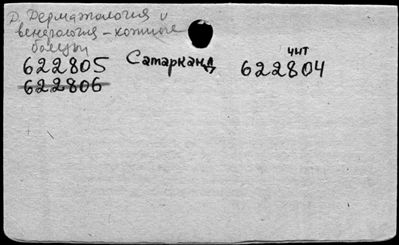 Р. Дерматология и
венерология - кожные
болезни
622805 Самарканд чит 622804
622806